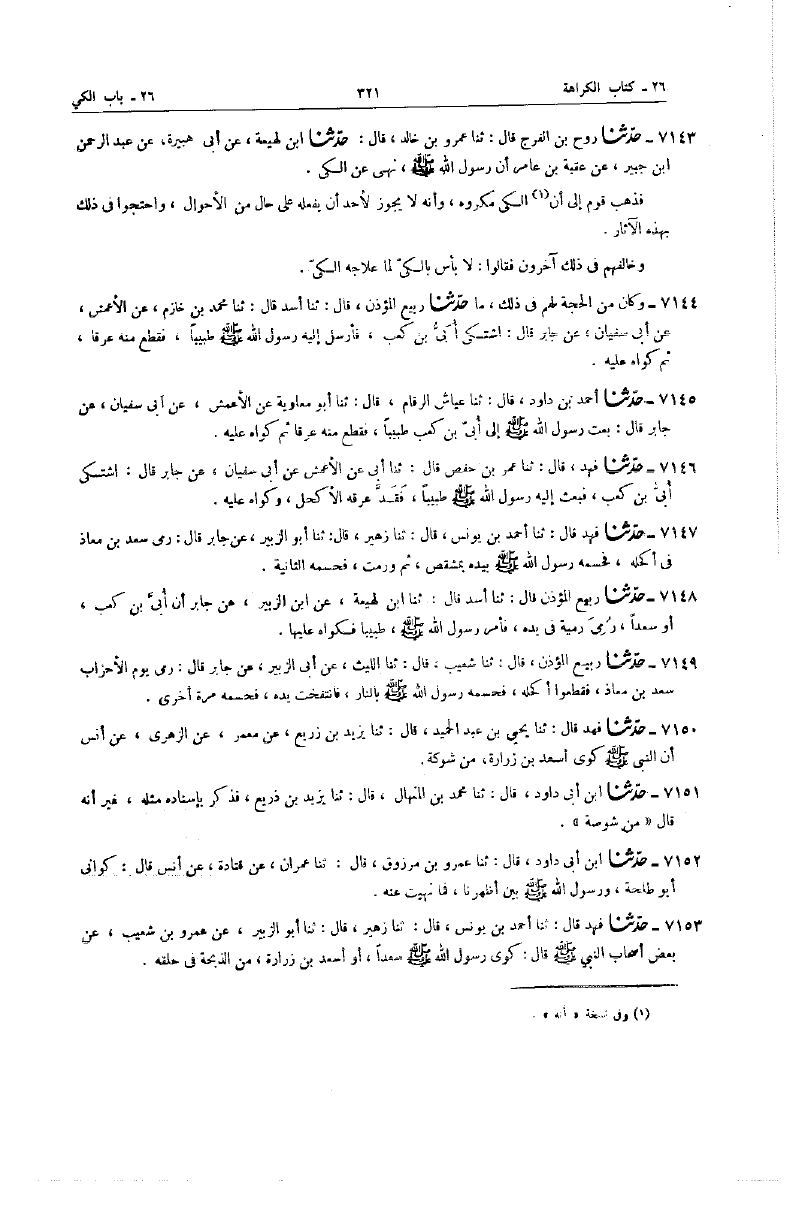 ٢٦ ـ كتاب الكراهة ٣٢١ ٢٦ ـ باب الكي
٧١٤٣ ـ حدّثنا روح بن الفرج قال : ثنا عمرو بن خالد ، قال : حدّثنا ابن لهيعة ، عن أبى هبيرة، عن عبد الرحمن
ابن جبير ، عن عقبة بن عامر أن رسول الله ﷺ ، نهى عن الكى .
فذهب قوم إلى أن(١) الكى مكروه ، وأنه لا يجوز لأحد أن يفعله على حال من الأحوال ، واحتجوا فى ذلك
بهذه الآثار .
وخالفهم فى ذلك آخرون فقالوا : لا بأس بالكىّ لما علاجه الكىّ .
٧١٤٤ ـ وكان من الحجة لهم فى ذلك ، ما حدّثنا ربيع المؤذن ، قال : ثنا أسد قال : ثنا محمد بن خازم ، عن الأعمش ،
عن أبى سفيان ، عن جابر قال : اشتكى أُبىُّ بن كعب ، فأرسل إليه رسول الله ﷺ طبيباً ، فقطع منه عرقا ،
ثم كواه عليه .
٧١٤٥ ـ حدّثنا أحمد بن داود ، قال : ثنا عياش الرقام ، قال : ثنا أبو معاوية عن الأعمش ، عن أبى سفيان ، عن
جابر قال : بعث رسول الله ﷺ إلى أُبىّ بن كعب طبيباً ، فقطع منه عرقا ثم كواه عليه .
٧١٤٦ ـ حدّثنا فهد ، قال : ثنا عمر بن حفص قال : ثنا أبى عن الأعمش عن أبى سفيان ، عن جابر قال : اشتكى
أُبىُّ بن كعب ، فبعث إليه رسول الله ﷺ طبيباً ، فَقَـدَّ عرقه الأكحل ، وكواه عليه .
٧١٤٧ ـ حدّثنا فهد قال : ثنا أحمد بن يونس ، قال : ثنا زهير ، قال: ثنا أبو الزبير ، عن جابر قال : رمى سعد بن معاذ
فى أكحله ، فحسمه رسول الله ﷺ بيده بمشقص ، ثم ورمت ، فحسمه الثانية .
٧١٤٨ ـ حدّثنا ربيع المؤذن قال : ثنا أسد قال : ثنا ابن لهيعة ، عن ابن الزبير ، عن جابر أن أُبىَّ بن كعب ،
أو سعداً ، رُمِىَ رمية فى يده ، فأمر رسول الله ﷺ ، طبيبا فكواه عليها .
٧١٤٩ ـ حدّثنا ربيع المؤذن ، قال : ثنا شعيب ، قال : ثنا الليث ، عن أبى الزبير ، عن جابر قال : رمى يوم الأحزاب
سعد بن معاذ ، فقطعوا أكحله ، فحسمه رسول الله ﷺ بالنار ، فانتفخت يده ، فحسمه مرة أخرى .
٧١٥٠ ـ حدّثنا فهد قال : ثنا يحيى بن عبد الحميد ، قال : ثنا يزيد بن زريع ، عن معمر ، عن الزهرى ، عن أنس
أن النبي ﷺ كوى أسعد بن زرارة، من شوكة.
٧١٥١ ـ حدّثنا ابن أبى داود ، قال : ثنا محمد بن المنهال ، قال : ثنا يزيد بن ذريع ، فذكر بإسناده مثله ، غير أنه
قال « من شوصة » .
٧١٥٢ ـ حدّثنا ابن أبى داود ، قال : ثنا عمرو بن مرزوق ، قال : ثنا عمران ، عن قتادة ، عن أنس قال : كوانى
أبو طلحة ، ورسول الله ﷺ بين أظهرنا ، فما نهيت عنه .
٧١٥٣ ـ حدّثنا فهد قال : ثنا أحمد بن يونس ، قال : ثنا زهير ، قال : ثنا أبو الزبير ، عن عمرو بن شعيب ، عن
بعض أصحاب النبي ﷺ قال : كوى رسول الله ﷺ سعداً ، أو أسعد بن زرارة ، من الذبحة فى حلقه .
(١) وفى نسخة « أنه » .